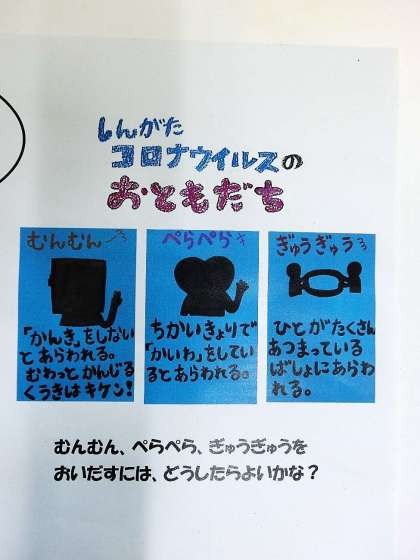 しんがた
コロナウイルスの
おともだち
むんむん
「かんき」をしない
とあらわれる。
むわっとかんじる
くうきはキケン!
ぺらぺら
ちかいきょりで
「かいわ」をしてい
るとあらわれる。
ぎゅうぎゅう
ひとがたくさん
あつまっている
ばしょにあらわ
れる。
むんむん、ぺらぺら、ぎゅうぎゅうを
おいだすには、どうしたらよいかな?